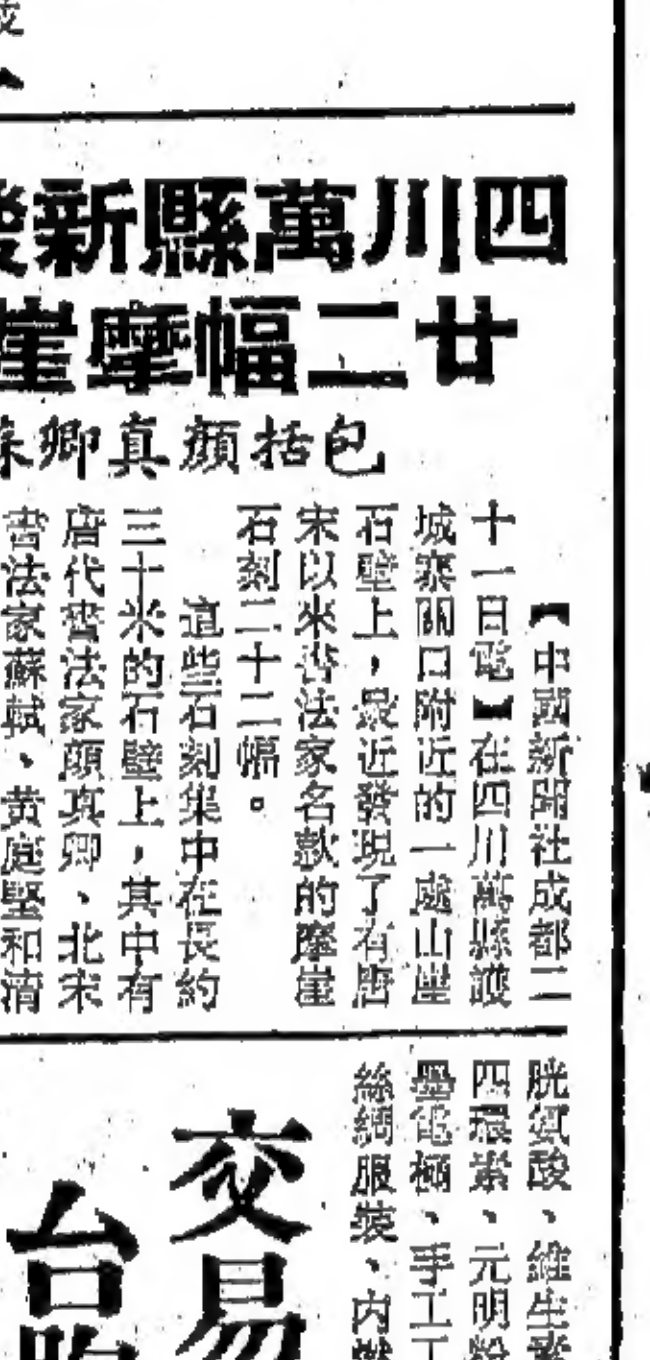 四川萬縣新發
廿二幅摩崖
包括顏真卿蘇
【中國新聞社成都二
十一日電】在四川萬縣護
城寨關口附近的一處山崖
石壁上，最近發現了有唐
宋以來書法家名款的摩崖
石刻二十二幅。
這些石刻集中在長約
三十米的石壁上，其中有
唐代書法家顏真卿、北宋
書法家蘇軾、黃庭堅和清
胱氨酸、維生素
四環素、元明粉
墨電極、手工工
絲綢服裝、內燃
交易
台